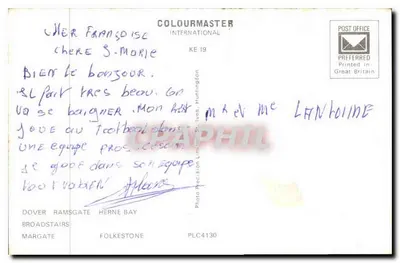 COLOURMASTER
INTERNATIONAL
KE 19
POST OFFICE
PREFERRED
Printed in
Great Britain
CHER FRANÇOISE
CHERE J-MARIE
BIEN LE BONJOUR.
IL FAIT TRES BEAU. ON
VA SE BAIGNER. MON
JOUE AU FOOTBALL dans
UNE EQUIPE
JE JOUE DANS SON EQUIPE
MR ET Me LANTOINE
CPAPHIL
DOVER RAMSGATE HERNE BAY
BROADSTAIRS
MARGATE FOLKESTONE PLC4130